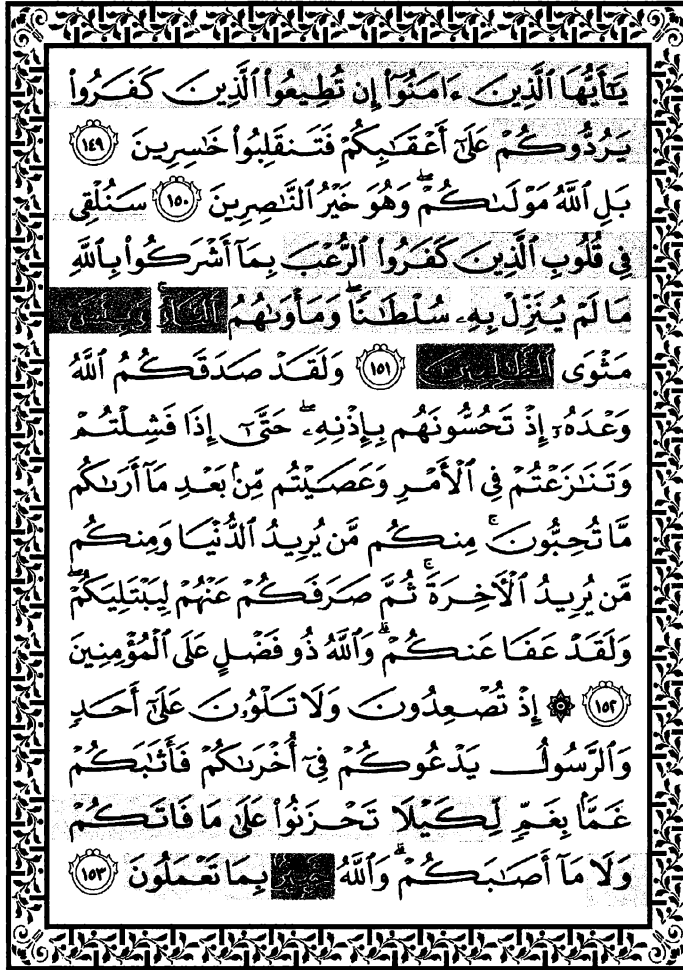 يَٰٓأَيُّهَا ٱلَّذِينَ ءَامَنُوٓا۟ إِن تُطِيعُوا۟ ٱلَّذِينَ كَفَرُوا۟
يَرُدُّوكُمْ عَلَىٰٓ أَعْقَٰبِكُمْ فَتَنقَلِبُوا۟ خَٰسِرِينَ ١٤٩
بَلِ ٱللَّهُ مَوْلَىٰكُمْ ۖ وَهُوَ خَيْرُ ٱلنَّٰصِرِينَ ١٥٠ سَنُلْقِى
فِى قُلُوبِ ٱلَّذِينَ كَفَرُوا۟ ٱلرُّعْبَ بِمَآ أَشْرَكُوا۟ بِٱللَّهِ
مَا لَمْ يُنَزِّلْ بِهِۦ سُلْطَٰنًا ۖ وَمَأْوَىٰهُمُ ٱلنَّارُ ۚ وَبِئْسَ
مَثْوَى ٱلظَّٰلِمِينَ ١٥١ وَلَقَدْ صَدَقَكُمُ ٱللَّهُ
وَعْدَهُۥٓ إِذْ تَحُسُّونَهُم بِإِذْنِهِۦ ۖ حَتَّىٰٓ إِذَا فَشِلْتُمْ
وَتَنَٰزَعْتُمْ فِى ٱلْأَمْرِ وَعَصَيْتُم مِّنۢ بَعْدِ مَآ أَرَىٰكُم
مَّا تُحِبُّونَ ۚ مِنكُم مَّن يُرِيدُ ٱلدُّنْيَا وَمِنكُم
مَّن يُرِيدُ ٱلْءَاخِرَةَ ۚ ثُمَّ صَرَفَكُمْ عَنْهُمْ لِيَبْتَلِيَكُمْ ۖ
وَلَقَدْ عَفَا عَنكُمْ ۗ وَٱللَّهُ ذُو فَضْلٍ عَلَى ٱلْمُؤْمِنِينَ
١٥٢ ۞ إِذْ تُصْعِدُونَ وَلَا تَلْوُۥنَ عَلَىٰٓ أَحَدٍ
وَٱلرَّسُولُ يَدْعُوكُمْ فِىٓ أُخْرَىٰكُمْ فَأَثَٰبَكُمْ
غَمًّۢا بِغَمٍّ لِّكَيْلَا تَحْزَنُوا۟ عَلَىٰ مَا فَاتَكُمْ
وَلَا مَآ أَصَٰبَكُمْ ۗ وَٱللَّهُ خَبِيرٌۢ بِمَا تَعْمَلُونَ ١٥٣